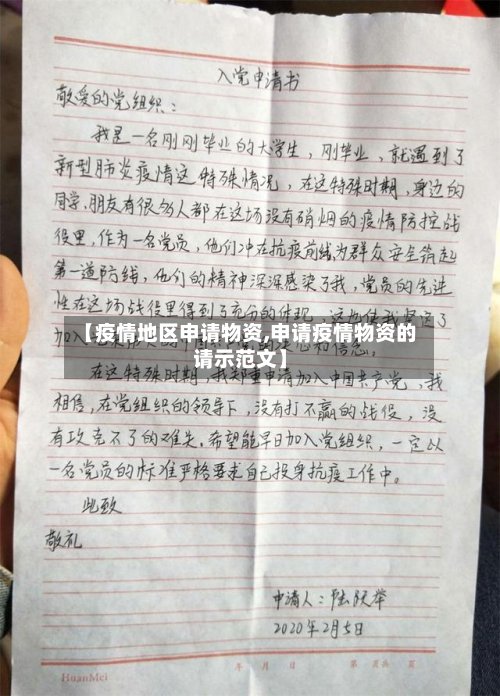 入党申请书
敬爱的党组织：
我是一名刚刚毕业的大学生，刚毕业，就遇到了
新型肺炎疫情这特殊情况，在这特殊时期，身边的
同学，朋友有很多人都在这场没有硝烟的疫情防控战
役里，作为一名党员，他们冲在抗疫前线，为群众安全筑起
第一道防线，他们的精神深深感染了我，党员的先进
性在这场战役里得到了充分的体现，这也使我坚定了
加入
【疫情地区申请物资,申请疫情物资的
请示范文】
在这特殊时期，我郑重申请加入中国共产党，我
相信，在党组织的领导下，没有打不赢的战役，没
有攻克不了的难关。希望能早日加入党组织，一定以
一名党员的标准严格要求自己投身抗疫工作中。
此致
敬礼
申请人：陆
2020年2月5日
HuanMei
年 月 日
第 页